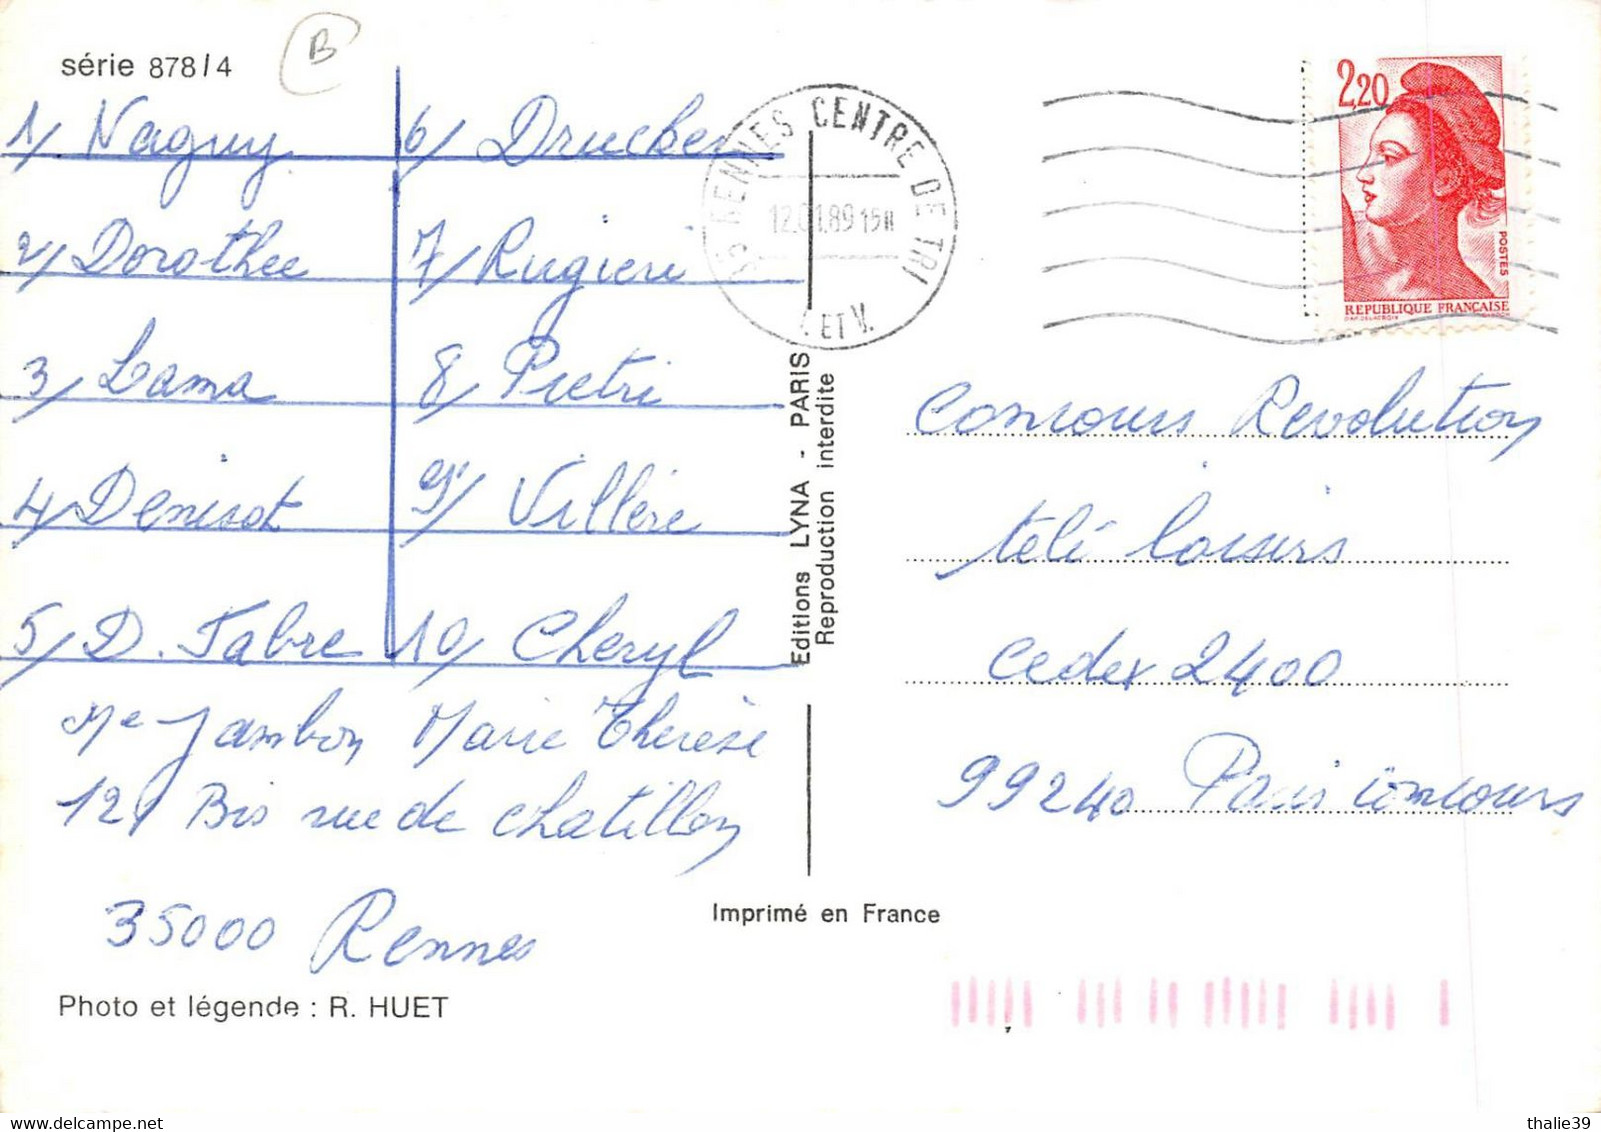 série 878/4
B
1/ Naguy
2/ Dorothee
3/ Lama
4/ Denisot
5/ D. Fabre
6/ Drucker
7/ Rugieri
8/ Pietri
9/ Villére
10/ Cheryl
Me Jambon Marie Thérèse
12 Bis rue de chatillon
35000 Rennes
Photo et légende : R. HUET
Editions LYNA - PARIS
Reproduction interdite
Imprimé en France
35 RENNES CENTRE DE TRI
12.01.89 15H
I. ET V.
2,20
POSTES
REPUBLIQUE FRANÇAISE
Concours Revolution
télé loisirs
Cedex 2400
99240 Paris concours
thalie39